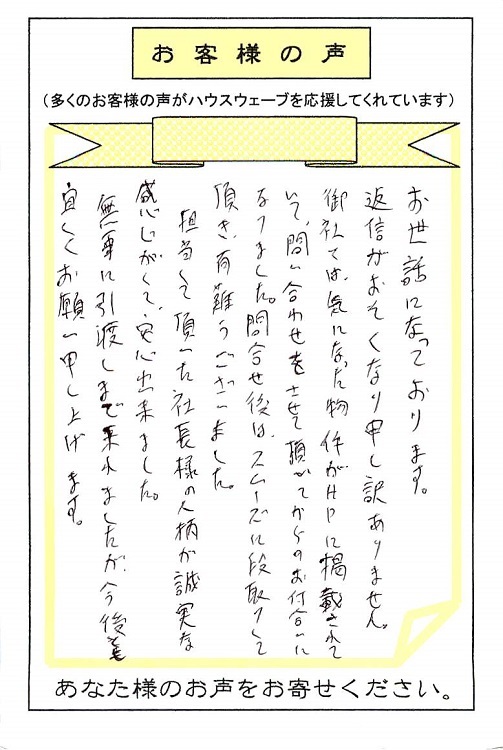 お客様の声
(多くのお客様の声がハウスウェーブを応援してくれています)
お世話になっております。
返信がおそくなり申し訳ありません。
御社では、気になった物件がHPに掲載されて
いて、問い合わせをさせて頂いてからのお付合いに
なりました。問合せ後は、スムーズに段取りして
頂き、有難うございました。
担当して頂いた社長様の人柄が誠実な
感じがして、安心出来ました。
無事に引渡しまで来れましたが、今後とも
宜しくお願い申し上げます。
あなた様のお声をお寄せください。